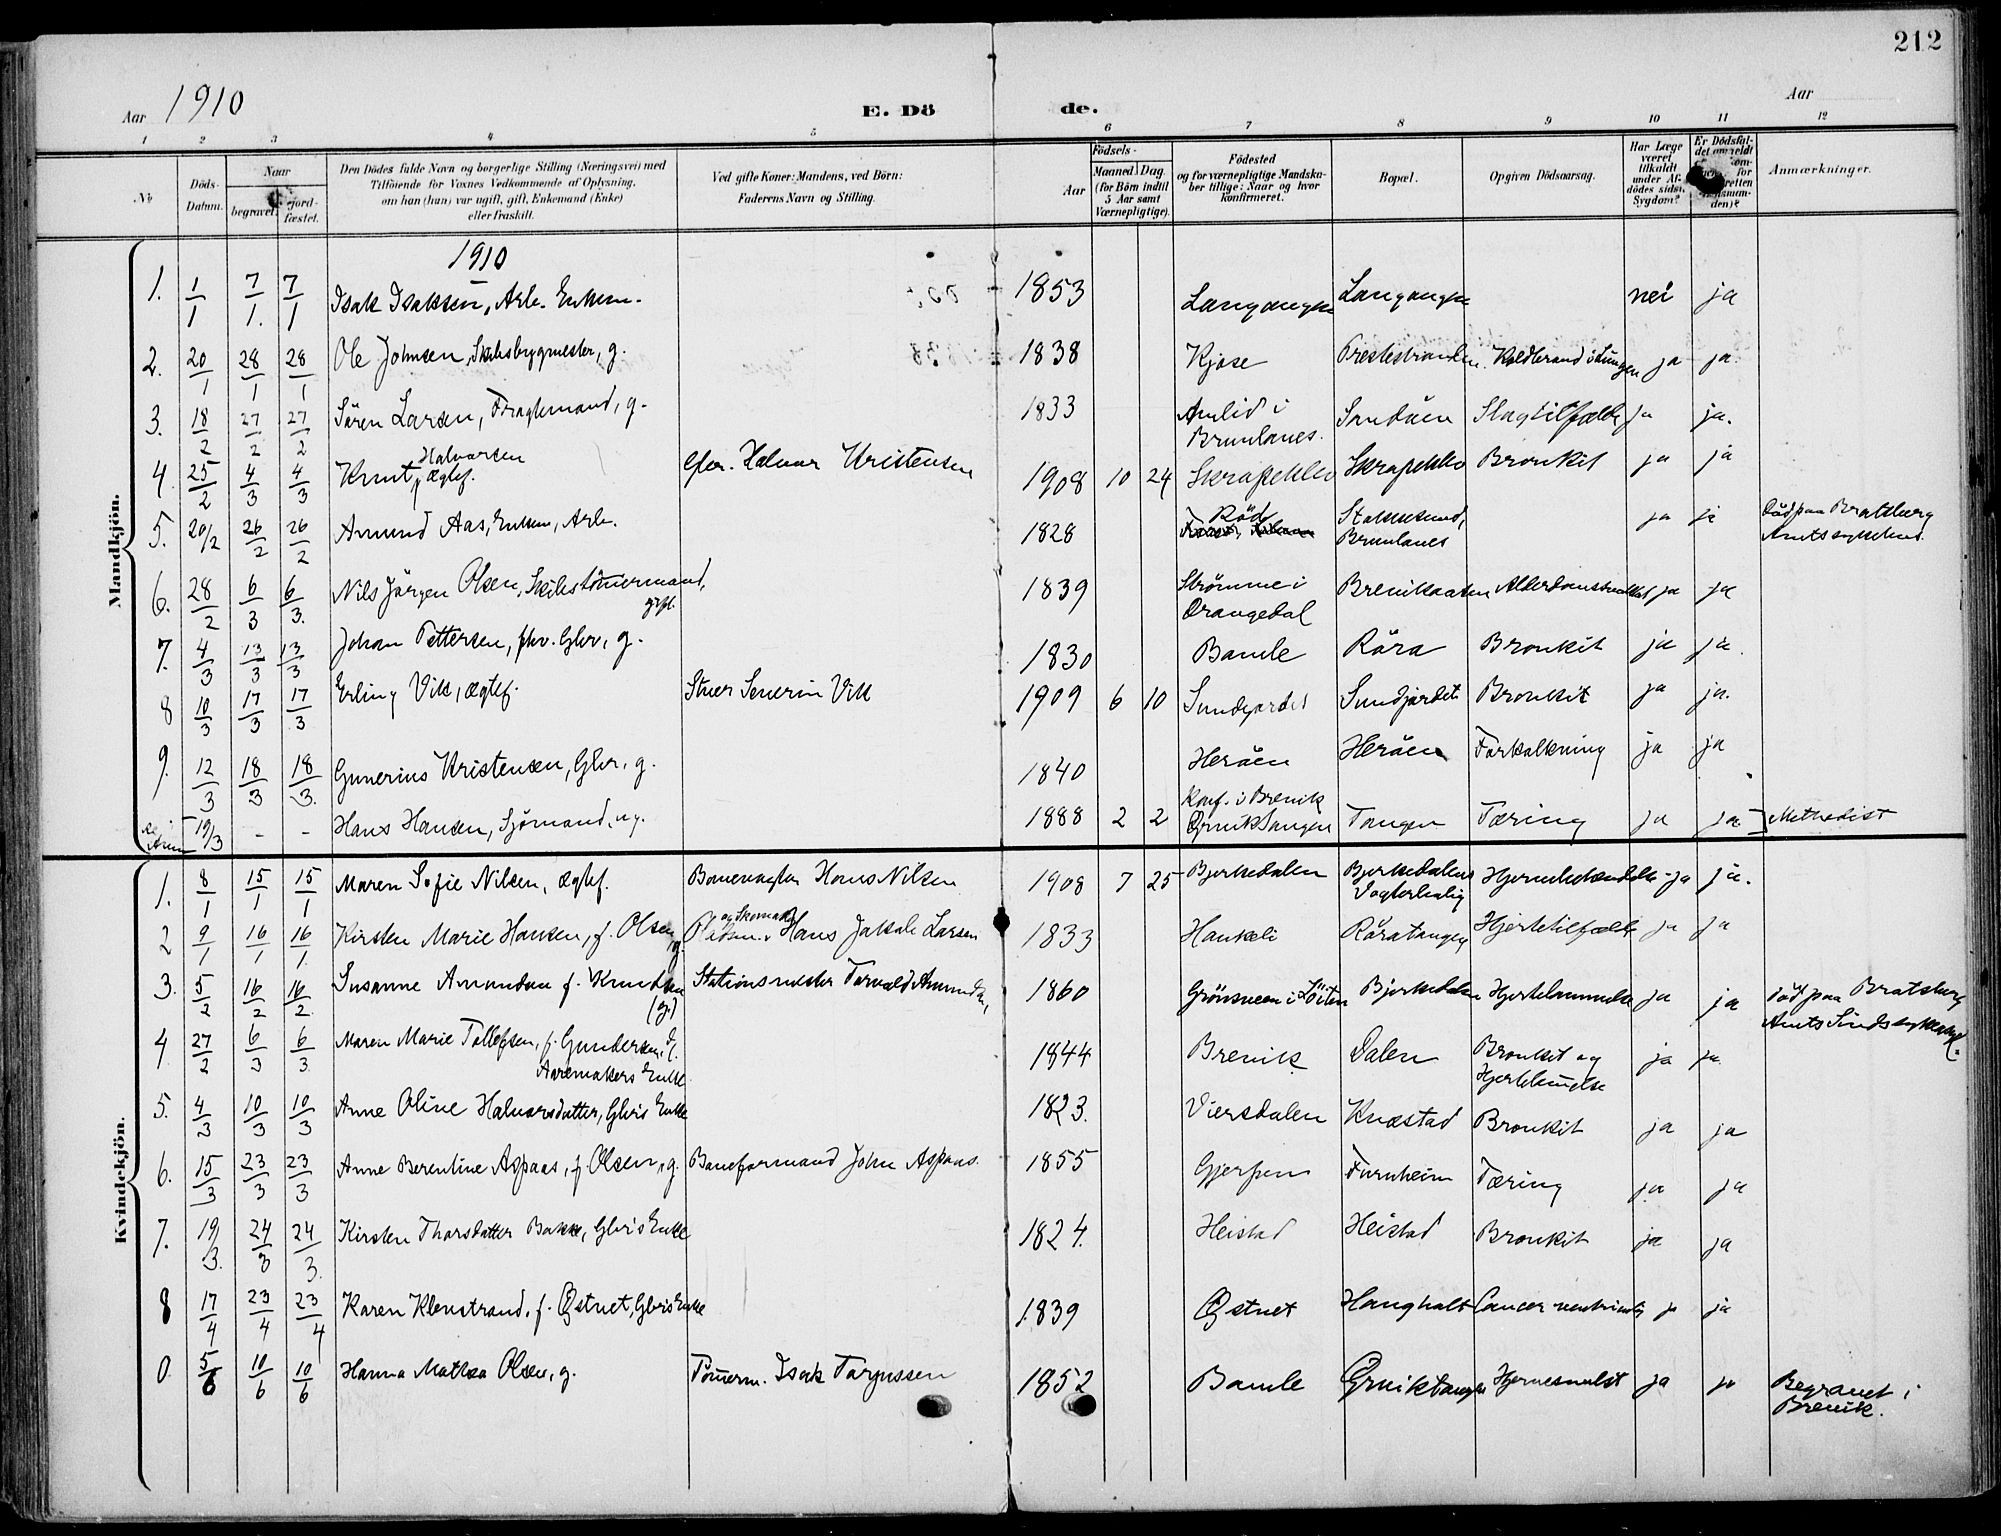 212
Aar 1910
E. Dö de.
Aar
1 2 3 4 5 6 7 8 9 10 11 12
No
Döds-Datum.
Naar
begravet.
jord-fæstet.
Den Dödes fulde Navn og borgerlige Stilling (Næringsvei) med
Tilföiende for Voxnes Vedkommende af Oplysning,
om han (hun) var ugift, gift, Enkemand (Enke)
eller fraskilt.
Ved gifte Koner: Mandens, ved Börn:
Faderens Navn og Stilling.
Födsels-
Aar
Maaned Dag
(for Börn indtil
5 Aar samt
Værnepligtige).
Födested
og for værnepligtige Mandska-
ber tillige: Naar og hvor
konfirmeret.
Bopæl.
Opgiven Dödsaarsag.
Har Læge
været
tilkaldt
under Af-
dödes sidste
Sygdom?
Er Dödsfal-
det anmeldt
for
retten
den)?
Anmærkninger.
Mandkjön.
1910
1. 1/1 7/1. 7/1 Isak Isaksen, Arb. Enkem. 1853 Langangen Langangen nei ja
2. 20/1 28/1 28/1 Ole Johnsen, Skibsbygmester, g. 1838 Kjose Prestestranden. Koldbrand i Lungen ja ja.
3. 18/2 27/2 27/2 Sören Larsen, Fragtemand, g. 1833 Amlid i Brunlanes. Sandöen Slagtilfælde ja ja.
4. 25/2 4/3 4/3 Knut Halvorsen, ægtef. Gbr. Halvor Kristensen 1908 10 24 Skrapeklev Skrapeklev Bronkit ja ja
5. 20/2 26/2 26/2 Amund Aas, Enkem, Arb. 1828 Röd Stokkesund, Brunlanes ja ja Död paa Bratsberg Amtssykehus.
6. 28/2 6/3 6/3. Nils Jörgen Olsen, Skibstömermand, gift. 1839 Strömme i Drangedal Breviksaasen Alderdomssvakhet ja ja
7. 4/3 13/3 13/3 Johan Pettersen, fhv. Gbr, g. 1830 Bamle Röra Bronkit ja ja.
8 10/3 17/3 17/3 Erling Vik, ægtef. Stuer Severin Vik 1909 6 10 Sundjordet Sundjordet Bronkit ja ja.
9. 12/3 18/3 18/3. Gunerius Kristensen, Gbr, g. 1840 Heröen Heröen Forkalkning ja ja
19/3 - - Hans Hansen, Sjömand, ug. 1888 2 2 Konf. i Brevik Ørviktangen Tangen Tæring ja ja Methodist
Kvindekjön.
1. 8/1 15/1 15/1 Maren Sofie Nilsen, ægtef. Banevogter Hans Nilsen 1908 7 25 Bjerkedalen Bjerkedalens Vogterbolig Hjernebetændelse ja ja.
2 9/1 16/1 16/1. Kirsten Marie Hansen, f. Olsen, g. og Skomak. Hans Jakob Larsen 1833 Haukeli Röratangen Hjertetilfælde ja ja
3. 5/2 16/2 16/2. Susanne Amundsen f. Knudsen (g.) Stationsmester Torvald Amundsen, 1860 Grönsveen i Löiten Bjerkedalen Hjertelammelse ja ja Död paa Bratsberg Amts Sindssykeasyl.
4 27/2 6/3 6/3. Maren Marie Tollefsen, f. Gundersen, E. Aaremakers Enke. 1844 Brevik Dalen Bronkit og Hjertelidelse ja ja.
5. 4/3 10/3 10/3 Anne Oline Halvorsdatter, Gbrs Enke 1823. Viersdalen Knæstad Bronkit ja ja
6. 15/3 23/3 23/3 Anne Berentine Aspaas, f. Olsen, g. Baneformand John Aspaas. 1855 Gjerpen Furuheim Tæring ja ja
7. 19/3. 24/3 24/3. Kirsten Thorsdatter Bakke, Gbr's Enke 1824. Heistad Heistad Bronkit ja ja
8 17/4 23/4 23/4 Karen Klevstrand, f. Østvet, Gbrs Enke 1839 Østvet Haugholt Cancer ventriculi ja ja
5/6 10/6 10/6 Hanna Mathea Olsen, g. Tömerm. Isak Torjussen 1852 Bamle Ørviktangen Hjernesvulst ja ja Begravet i Brevik.